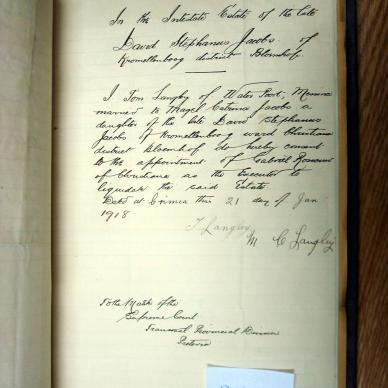 In the Intestate Estate of the late
David Stephanus Jacobs of
Kromellenboog district Bloemhof
I Tom Langley of
married to Magel Catrina Jacobs a
daughter of the late David Stephanus
Jacobs of Kromellenboog ward Christiana
district Bloemhof do hereby consent
to the appointment of Gabriel
of Christiana as the Executor to
liquidate the said Estate
Dated at this 21 day of Jany
1918
T Langley
M C Langley
To the Mastr of the
Supreme Court
Transvaal Provincial Division
Pretoria